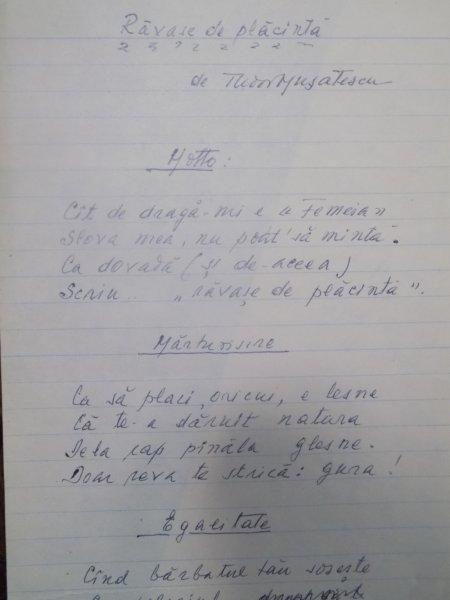 Răvașe de plăcintă
de Tudor Mușatescu
Motto:
Cît de dragă-mi e „Femeia”
Slova mea, nu poat' să mintă.
Ca dovadă (și de-aceea)
Scriu.. „răvașe de plăcintă”.
Mărturisire
Ca să placi, oricui, e lesne
Că te-a dăruit natura
Dela cap pînăla glesne.
Doar ceva te strică: gura!
Egalitate
Cînd bărbatul tău sosește